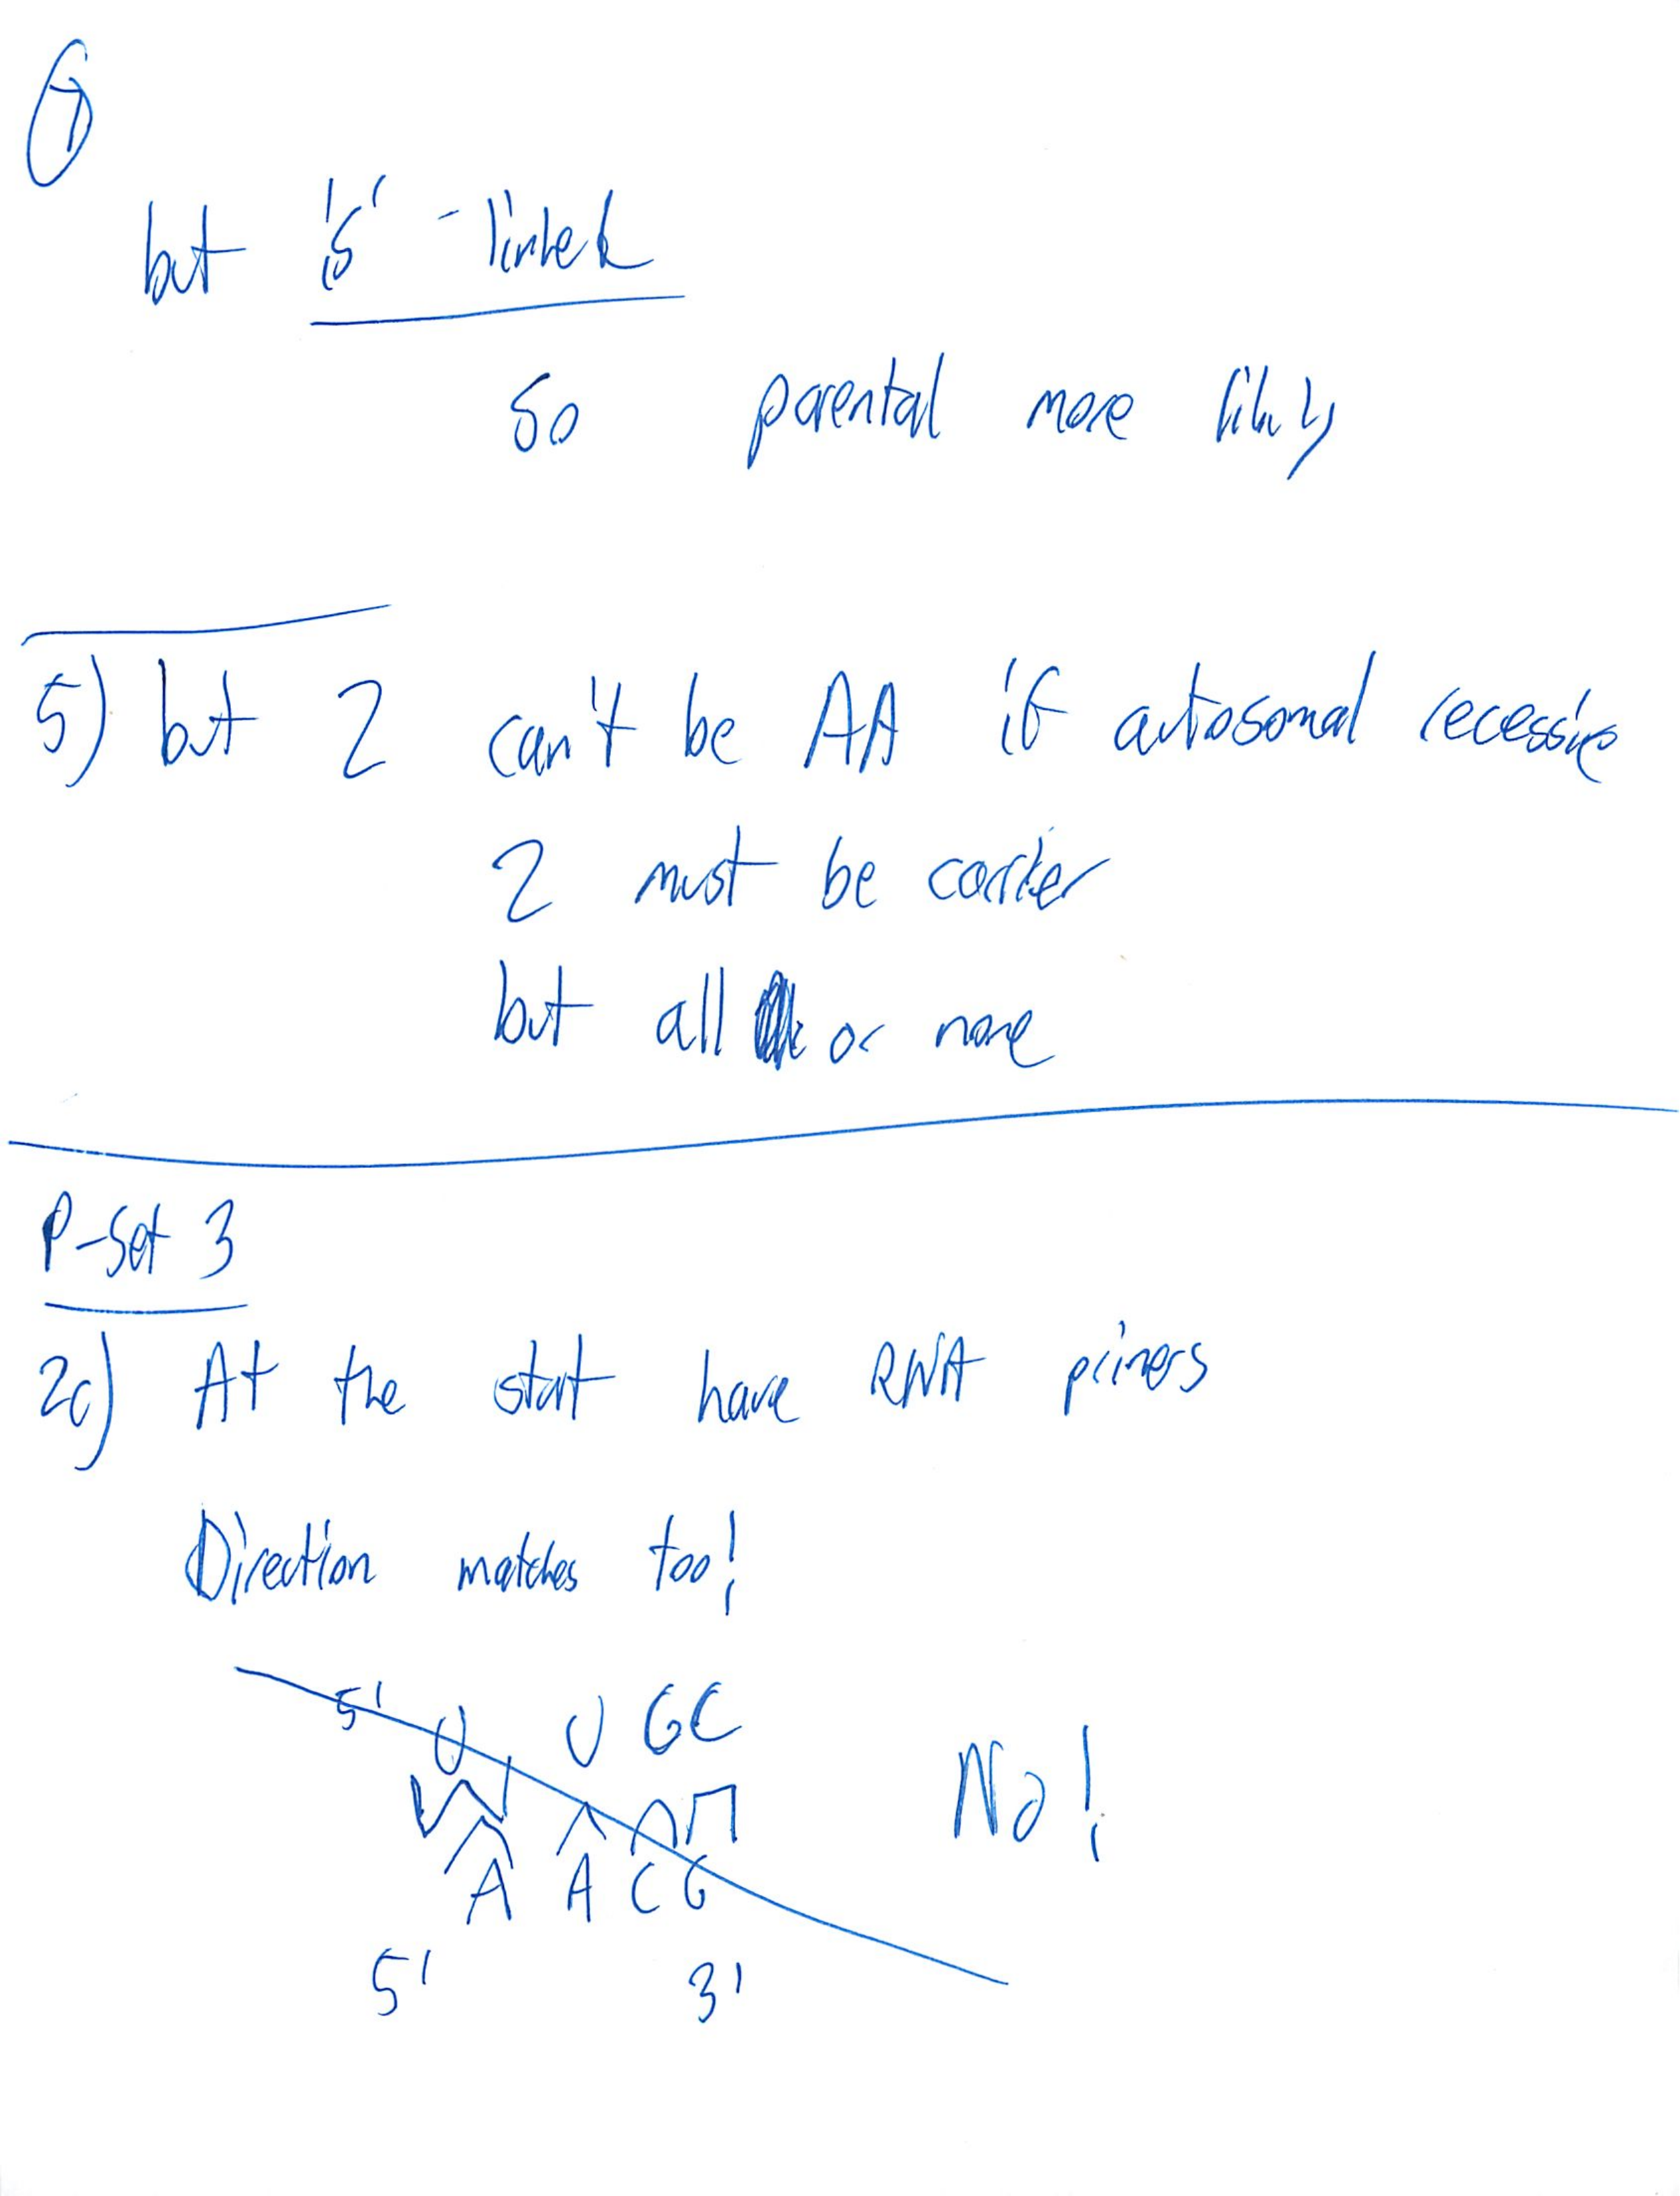 7
but is - linked
So parental more likely
5) but 2 can't be AA if autosomal recessive
2 must be carrier
but all or none
P-Set 3
2c) At the start have RNA primers
Direction matches too!
5' U U G C
A A C G
5' 3'
No!